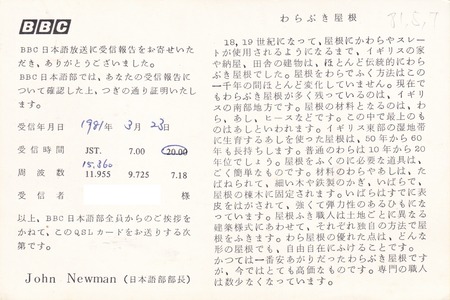 BBC
BBC日本語放送に受信報告をお寄せいた
だき、ありがとうございました。
BBC日本語部では、あなたの受信報告に
ついて確認した上、つぎの通り証明いたし
ます。
受信年月日 1981年 3月 23日
受信時間 JST. 7.00 20.00
15.360
周波数 11.955 9.725 7.18
受信者 様
以上、BBC日本語部全員からのご挨拶を
かねて、このQSLカードをお送りする次
第です。
John Newman (日本語部部長)
わらぶき屋根
81.5.7
18,19世紀になって、屋根にかわらやスレー
トが使用されるようになるまで、イギリスの家
や納屋、田舎の建物は、ほとんど伝統的にわら
ぶき屋根でした。屋根をわらでふく方法はこの
一千年の間ほとんど変化していません。現在で
もわらぶき屋根が多く残っているのは、イギリ
スの南部地方です。屋根の材料となるのは、わ
ら、あし、ヒースなどです。この中で最上のも
のはあしといわれます。イギリス東部の湿地帯
に生育するあしを使った屋根は、50年から60
年も長持ちします。普通のわらは10年から20
年位でしょう。屋根をふくのに必要な道具は、
ごく簡単なものです。材料のわらやあしは、た
ばねられて、細い木や鉄製のかぎ、いばらで、
屋根の棟木に固定されます。いばらはすでに表
皮をはがされて、強くて弾力性のあるひもにな
っています。屋根ふき職人は土地ごとに異なる
建築様式にあわせて、それぞれ独自の方法で屋
根をふきます。わら屋根の優れた点は、どんな
形の屋根でも、自由自在にふけることです。
かつては一番安あがりだったわらぶき屋根です
が、今ではとても高価なものです。専門の職人
は数少なくなっています。